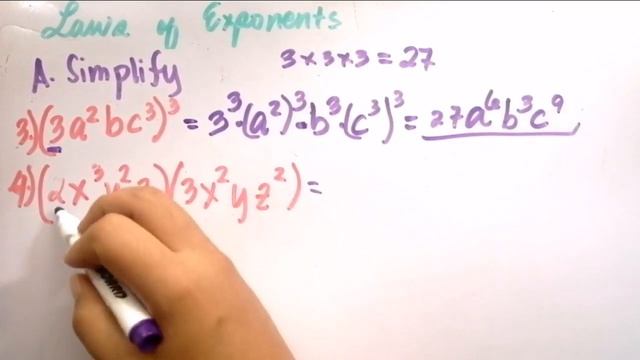 Laws of Exponents
A. Simplify 3 x 3 x 3 = 27
3.) (3a²bc³)³ = 3³·(a²)³·b³·(c³)³ = 27a⁶b³c⁹
4.) (2x³y²z)(3x²yz²) =